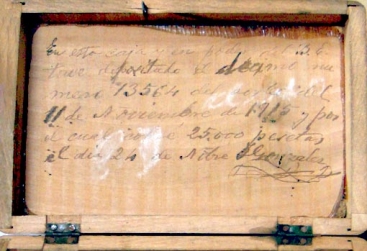 En esta caja y en poder del
tuve depositado el décimo nu
mero 13564 del
11 de Noviembre de 1915 y por
el cual 25.000 pesetas,
el dia 24 de Nobre Gonzalez